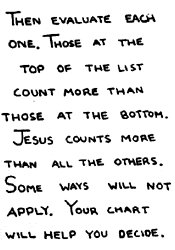 THEN EVALUATE EACH
ONE. THOSE AT THE
TOP OF THE LIST
COUNT MORE THAN
THOSE AT THE BOTTOM.
JESUS COUNTS MORE
THAN ALL THE OTHERS.
SOME WAYS WILL NOT
APPLY. YOUR CHART
WILL HELP YOU DECIDE.